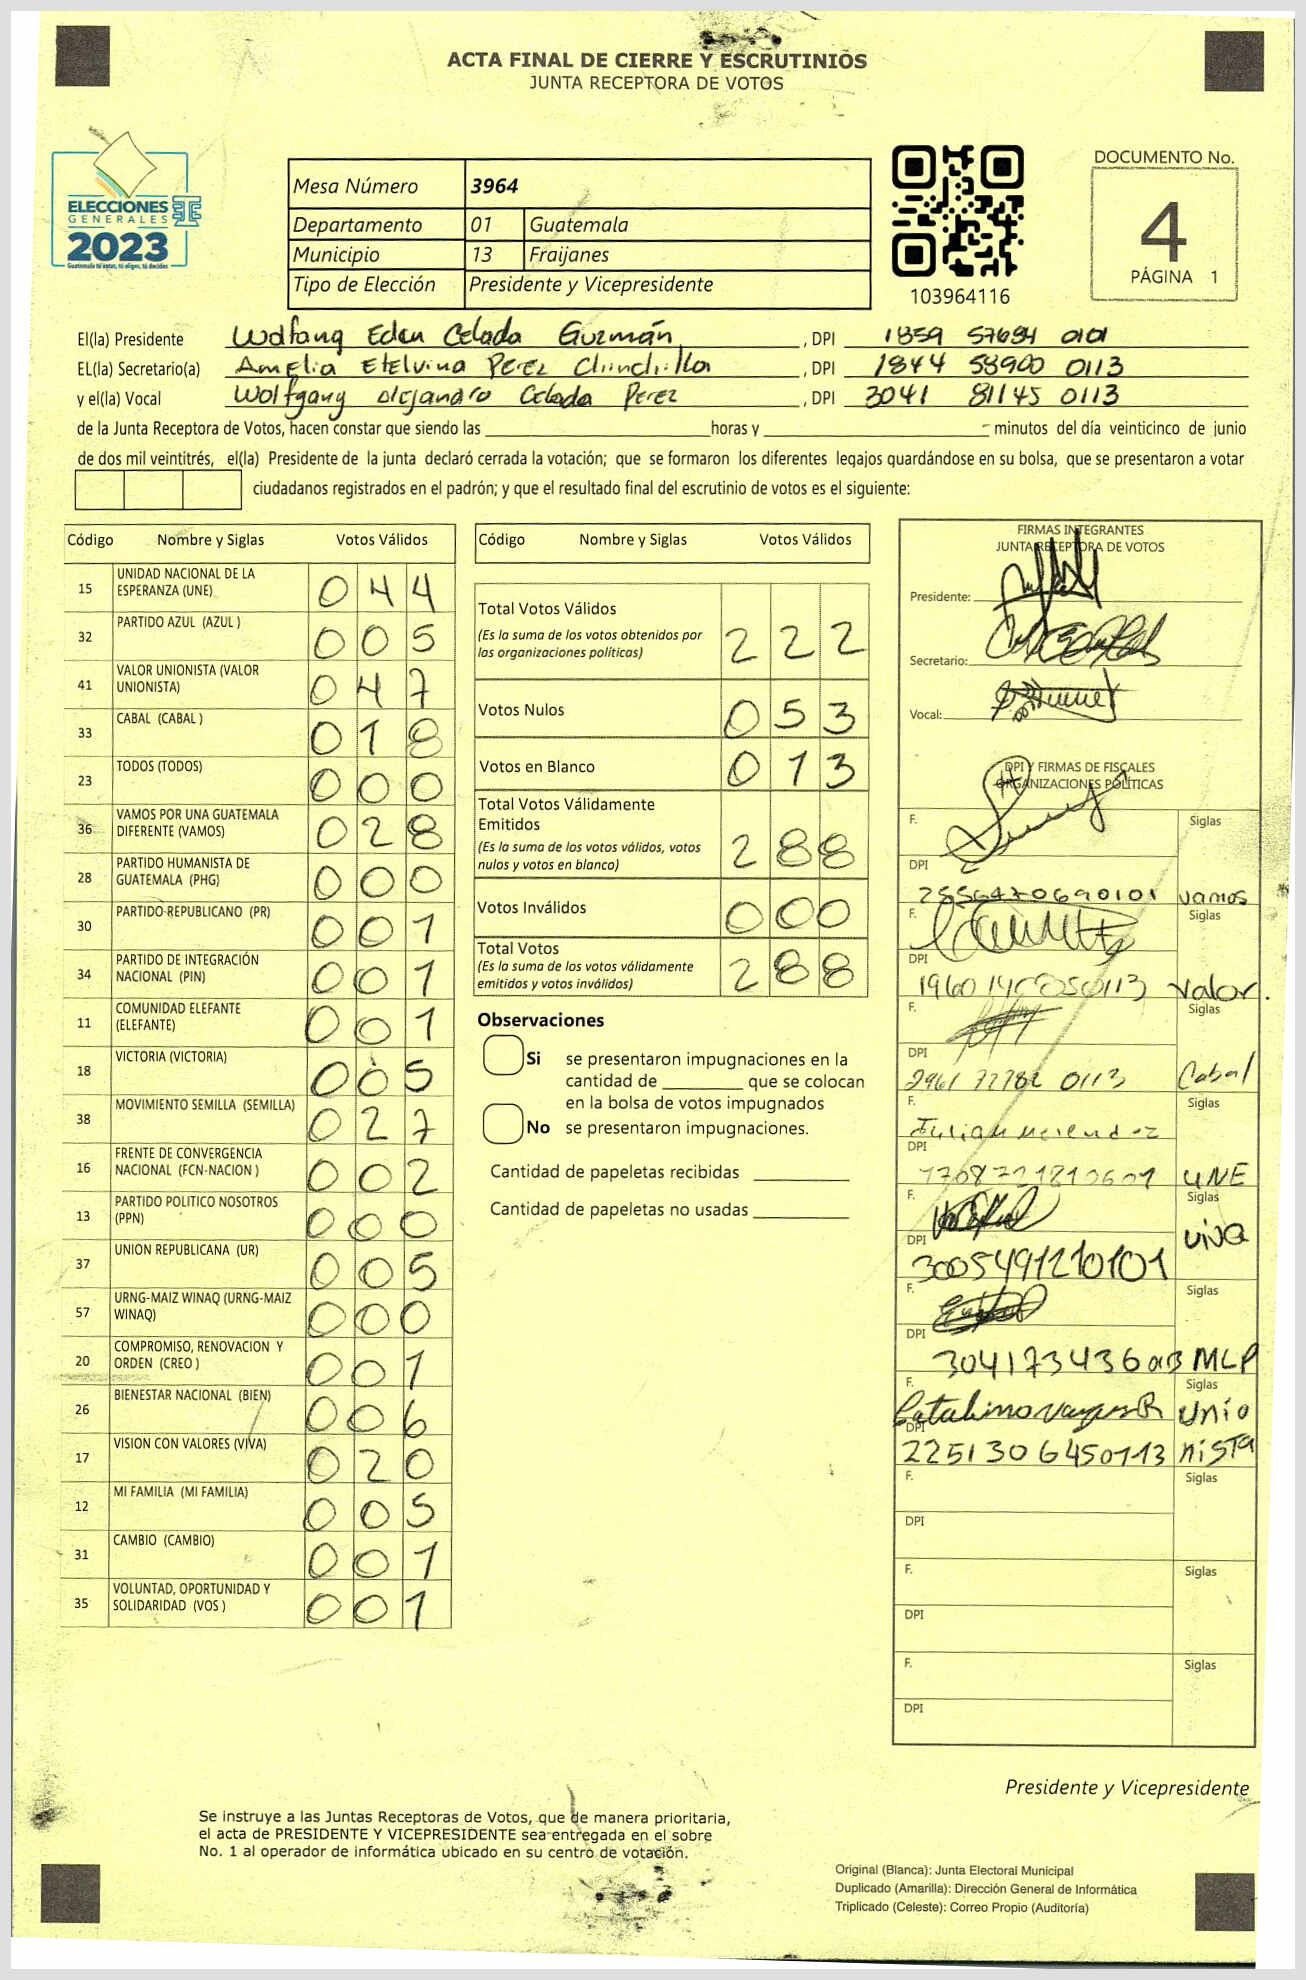 ACTA FINAL DE CIERRE Y ESCRUTINIOS
JUNTA RECEPTORA DE VOTOS
ELECCIONES
GENERALES
2023
Guatemala tú votas, tú eliges, tú decides
Mesa Número 3964
Departamento 01 Guatemala
Municipio 13 Fraijanes
Tipo de Elección Presidente y Vicepresidente
103964116
DOCUMENTO No.
4
PÁGINA 1
El(la) Presidente Wolfang Eden Celada Guzmán , DPI 1859 57654 0101
EL(la) Secretario(a) Amelia Etelvina Perez Chinchilla , DPI 1844 58900 0113
y el(la) Vocal Wolfgang Alejandro Celada Perez , DPI 3041 81145 0113
de la Junta Receptora de Votos, hacen constar que siendo las horas y minutos del día veinticinco de junio
de dos mil veintitrés, el(la) Presidente de la junta declaró cerrada la votación; que se formaron los diferentes legajos guardándose en su bolsa, que se presentaron a votar
ciudadanos registrados en el padrón; y que el resultado final del escrutinio de votos es el siguiente:
Código Nombre y Siglas Votos Válidos
15 UNIDAD NACIONAL DE LA ESPERANZA (UNE) 044
32 PARTIDO AZUL (AZUL ) 005
41 VALOR UNIONISTA (VALOR UNIONISTA) 047
33 CABAL (CABAL ) 018
23 TODOS (TODOS) 000
36 VAMOS POR UNA GUATEMALA DIFERENTE (VAMOS) 028
28 PARTIDO HUMANISTA DE GUATEMALA (PHG) 000
30 PARTIDO REPUBLICANO (PR) 001
34 PARTIDO DE INTEGRACIÓN NACIONAL (PIN) 001
11 COMUNIDAD ELEFANTE (ELEFANTE) 001
18 VICTORIA (VICTORIA) 005
38 MOVIMIENTO SEMILLA (SEMILLA) 027
16 FRENTE DE CONVERGENCIA NACIONAL (FCN-NACION ) 002
13 PARTIDO POLITICO NOSOTROS (PPN) 000
37 UNION REPUBLICANA (UR) 005
57 URNG-MAIZ WINAQ (URNG-MAIZ WINAQ) 000
20 COMPROMISO, RENOVACION Y ORDEN (CREO ) 001
26 BIENESTAR NACIONAL (BIEN) 006
17 VISION CON VALORES (VIVA) 020
12 MI FAMILIA (MI FAMILIA) 005
31 CAMBIO (CAMBIO) 001
35 VOLUNTAD, OPORTUNIDAD Y SOLIDARIDAD (VOS ) 001
Código Nombre y Siglas Votos Válidos
Total Votos Válidos 222
(Es la suma de los votos obtenidos por
las organizaciones políticas)
Votos Nulos 053
Votos en Blanco 013
Total Votos Válidamente
Emitidos 288
(Es la suma de los votos válidos, votos
nulos y votos en blanco)
Votos Inválidos 000
Total Votos 288
(Es la suma de los votos válidamente
emitidos y votos inválidos)
Observaciones
Si se presentaron impugnaciones en la
cantidad de que se colocan
en la bolsa de votos impugnados
No se presentaron impugnaciones.
Cantidad de papeletas recibidas
Cantidad de papeletas no usadas
FIRMAS INTEGRANTES
JUNTA RECEPTORA DE VOTOS
Presidente:
Secretario:
Vocal:
DPI Y FIRMAS DE FISCALES
ORGANIZACIONES POLÍTICAS
F. Siglas
DPI
2556470690101 vamos
F. Siglas
DPI
Valor.
F. Siglas
DPI
2961 77782 0113 Cabal
F. Siglas
DPI
1708721810601 UNE
F. Siglas
DPI viva
3005491210101
F. Siglas
DPI
MLP
F. Siglas
Catalino Unio
DPI
2251306450113 nista
F. Siglas
DPI
F. Siglas
DPI
F. Siglas
DPI
Presidente y Vicepresidente
Se instruye a las Juntas Receptoras de Votos, que de manera prioritaria,
el acta de PRESIDENTE Y VICEPRESIDENTE sea entregada en el sobre
No. 1 al operador de informática ubicado en su centro de votación.
Original (Blanca): Junta Electoral Municipal
Duplicado (Amarilla): Dirección General de Informática
Triplicado (Celeste): Correo Propio (Auditoría)